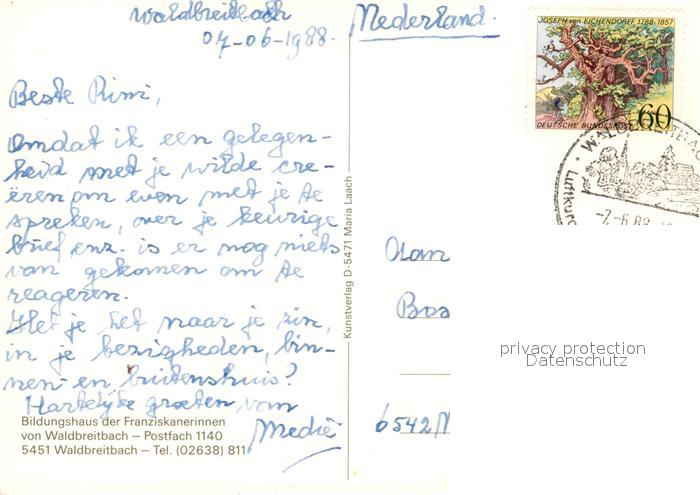 Waldbreitbach
07-06-1988.
Nederland.
Beste Rini,
Omdat ik een gelegen-
heid met je wilde cre-
ëren om even met je te
spreken, over je keurige
brief enz. is er nog niets
van gekomen om te
reageren.
Het je het naar je zin,
in je bezigheden, bin-
nen- en buitenshuis?
Hartelijke groeten van
Bildungshaus der Franziskanerinnen
von Waldbreitbach – Postfach 1140
5451 Waldbreitbach – Tel. (02638) 811
Kunstverlag D-5471 Maria Laach
JOSEPH von EICHENDORFF 1788-1857
60
DEUTSCHE BUNDESPOST
-7.-6.88
Luftkuro
Aan
6542
privacy protection
Datenschutz